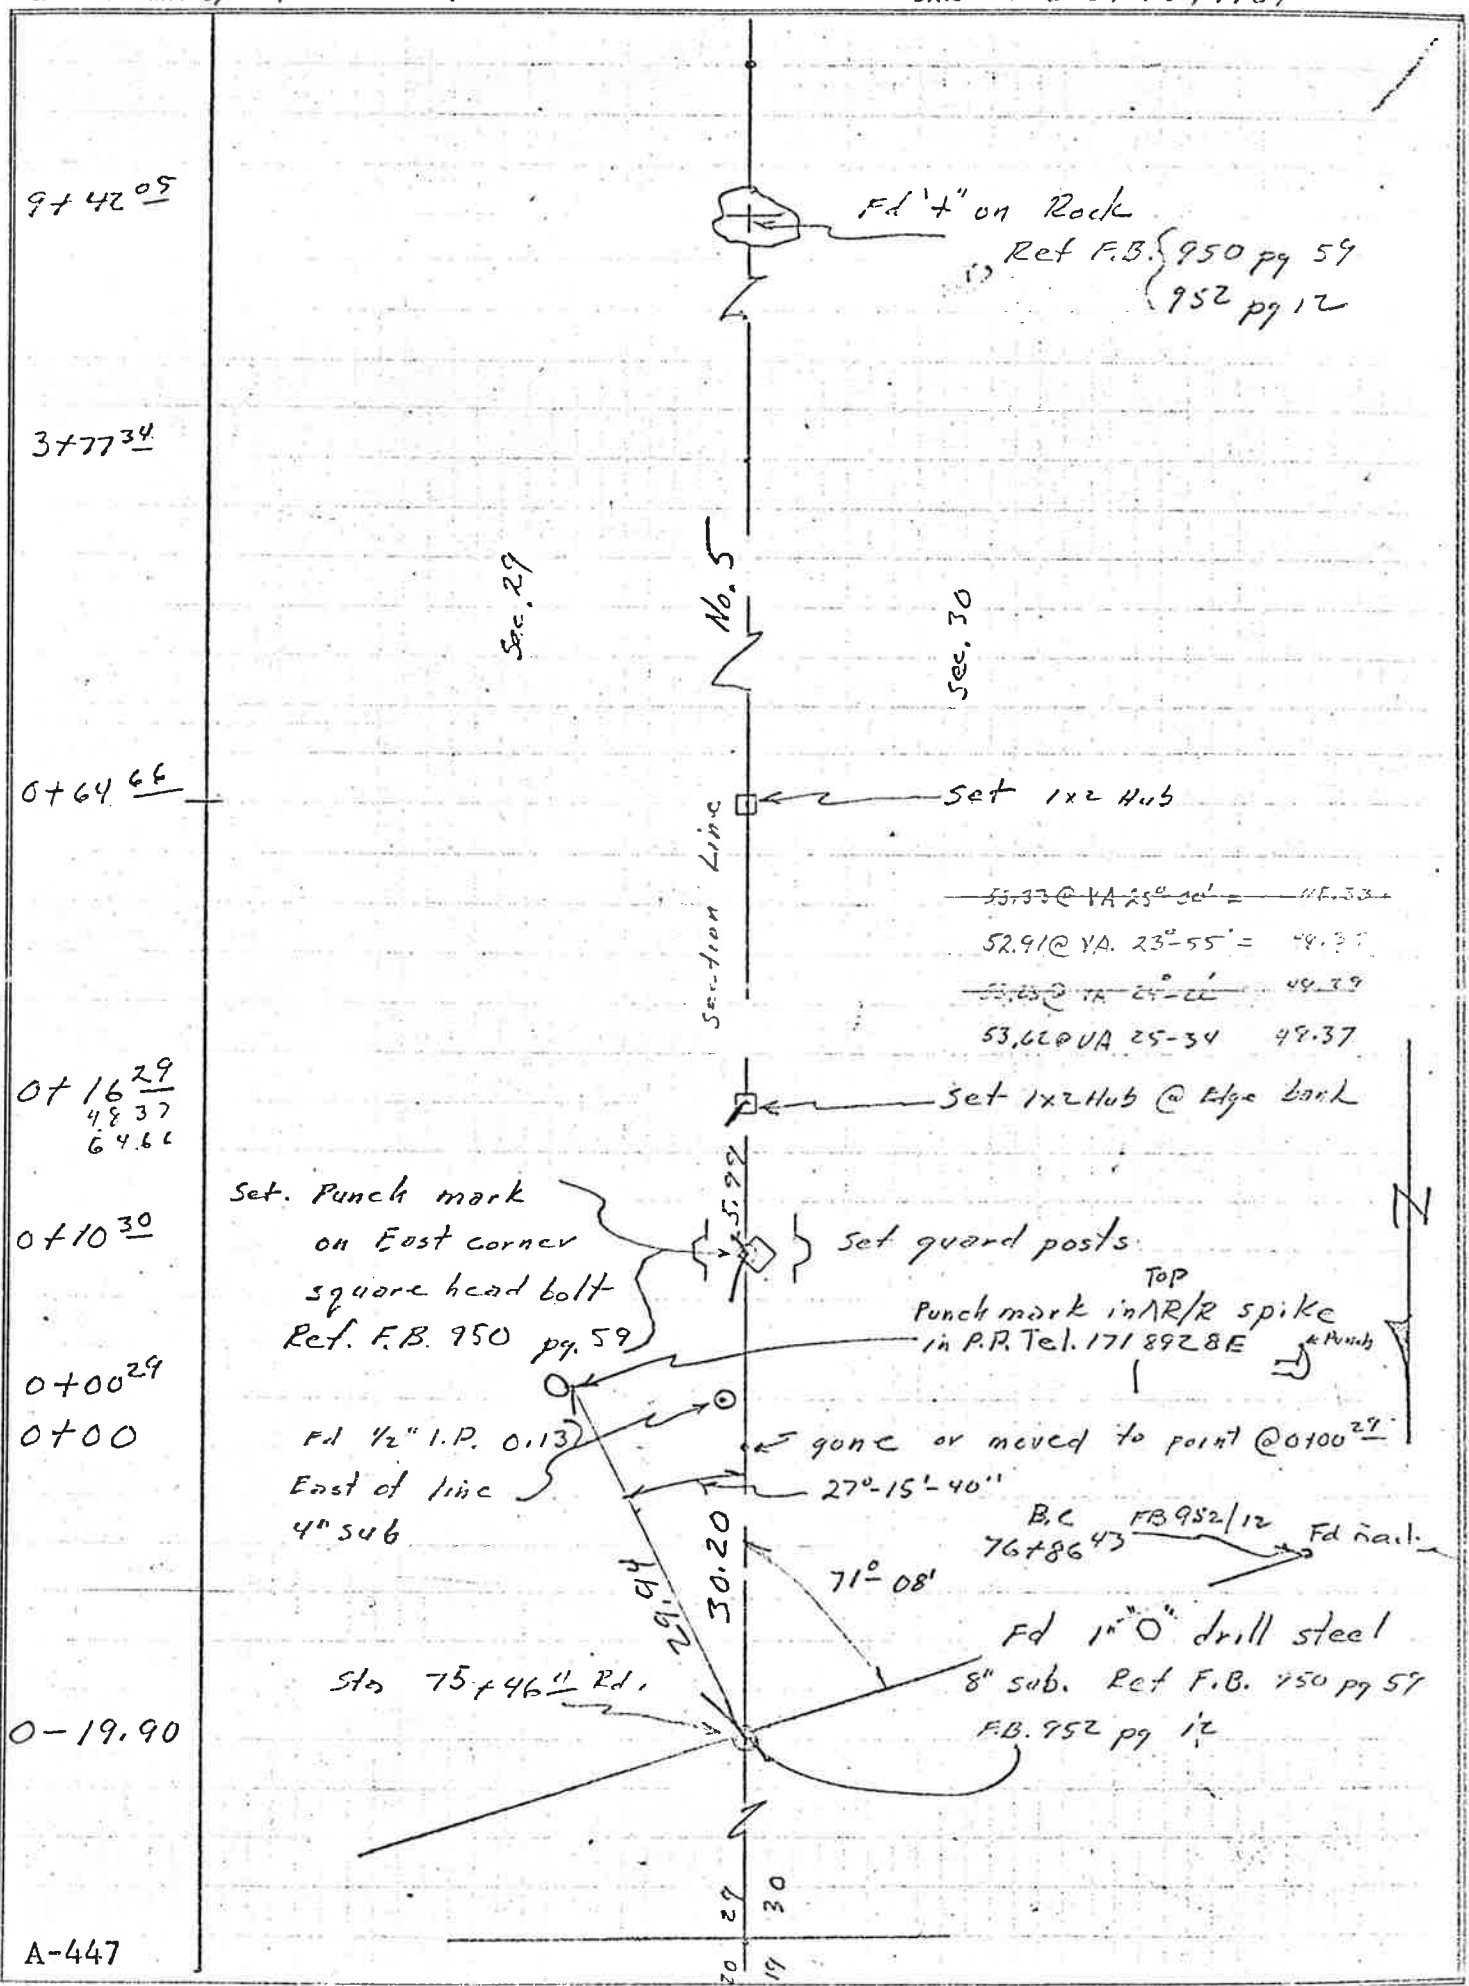 9+42 05
Fd "+" on Rock
Ref F.B. { 950 pg 59
952 pg 12
3+77 34
Sec. 29
No. 5
Sec. 30
0+64 66
Set 1x2 Hub
Section Line
52.91@ VA. 23°-55' =
53.62@VA 25-34 48.37
0+16 29
48 37
64.66
Set 1x2 Hub @ Edge bank
5.99
Set. Punch mark
on East corner
square head bolt
Ref. F.B. 950 pg. 59
0+10 30
Set guard posts
N
Top
Punch mark in ^ R/R spike
in P.P. Tel. 1718928E
Punch
0+00 29
0+00
Fd 1/2" I.P. 0.13
East of line
4" sub
gone or moved to point @0+00 29
27°-15'-40"
30.20
29.94
71°-08'
B.C
76+86 43
FB 952/12
Fd nail
Sta 75+46 11 Rd.
Fd 1" "O" drill steel
8" sub. Ref F.B. 950 pg 59
F.B. 952 pg 12
0-19.90
29
30
20
19
A-447